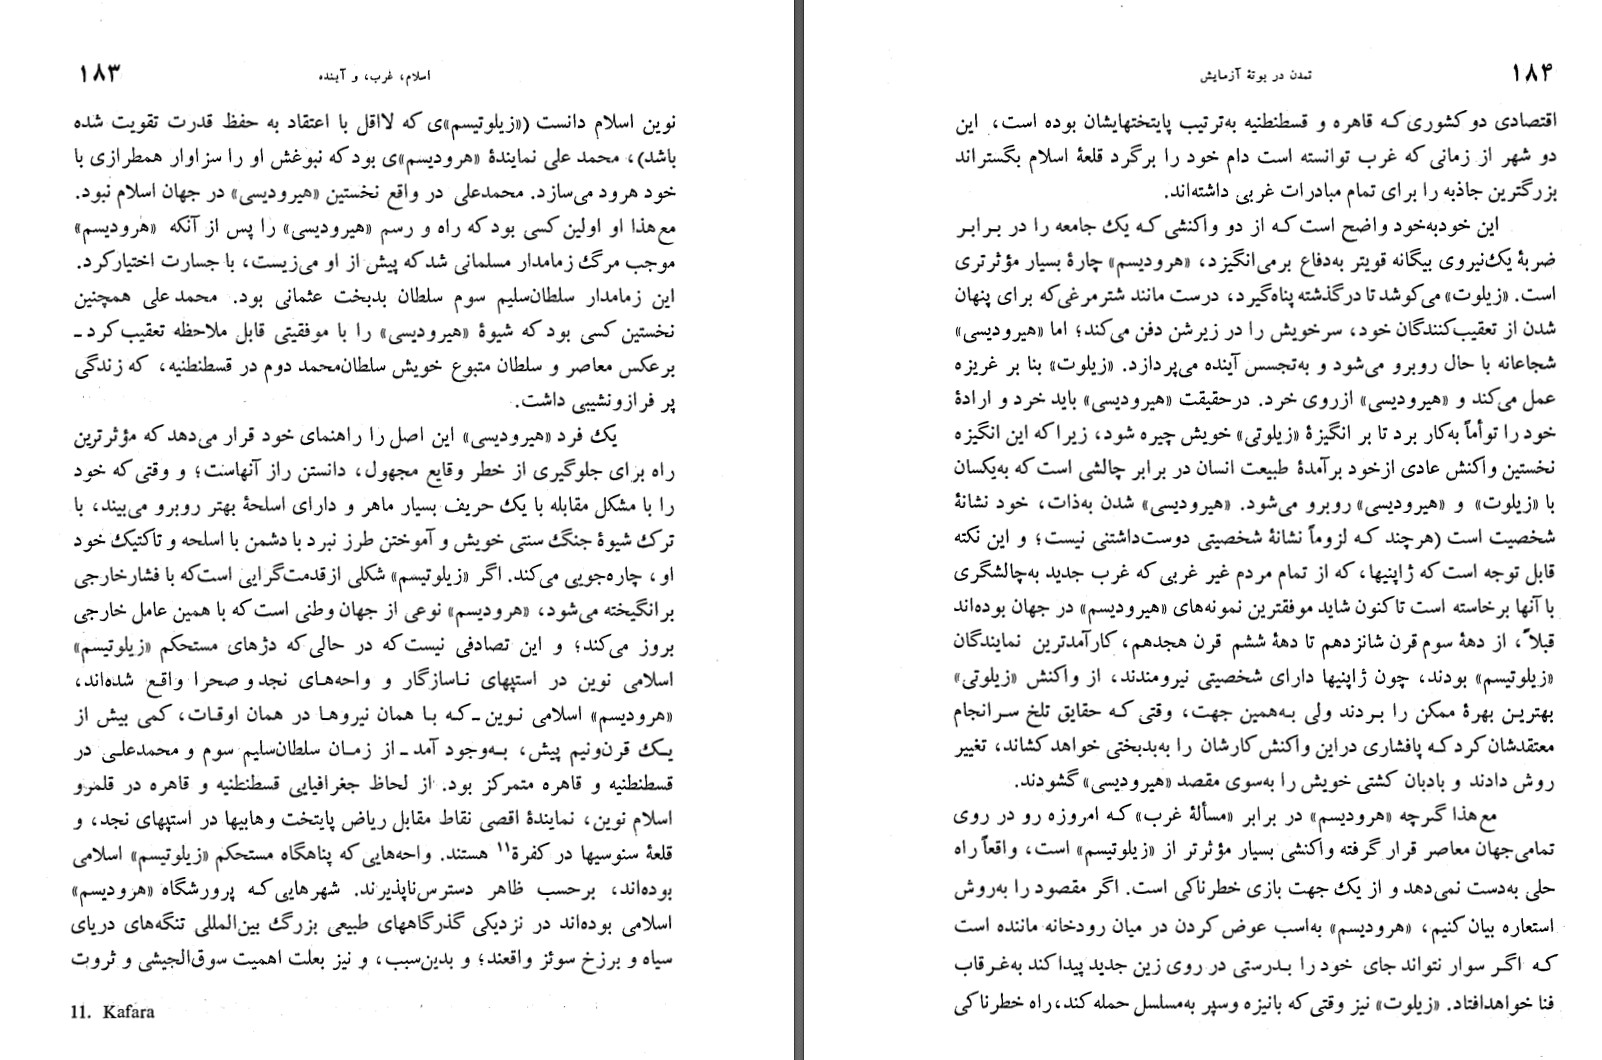 ۱۸۳
اسلام، غرب، و آینده
نوین اسلام دانست («زیلوتیسم»ی که لااقل با اعتقاد به حفظ قدرت تقویت شده
باشد)، محمد علی نمایندهٔ «هرودیسم»ی بود که نبوغش او را سزاوار همطرازی با
خود هرود می‌سازد. محمدعلی در واقع نخستین «هیرودیسی» در جهان اسلام نبود.
مع‌هذا او اولین کسی بود که راه و رسم «هیرودیسی» را پس از آنکه «هرودیسم»
موجب مرگ زمامدار مسلمانی شد که پیش از او می‌زیست، با جسارت اختیار کرد.
این زمامدار سلطان‌سلیم سوم سلطان بدبخت عثمانی بود. محمد علی همچنین
نخستین کسی بود که شیوهٔ «هیرودیسی» را با موفقیتی قابل ملاحظه تعقیب کرد ـ
برعکس معاصر و سلطان متبوع خویش سلطان‌محمد دوم در قسطنطنیه، که زندگی
پر فراز و نشیبی داشت.
یک فرد «هیرودیسی» این اصل را راهنمای خود قرار می‌دهد که مؤثرترین
راه برای جلوگیری از خطر وقایع مجهول، دانستن راز آنهاست؛ و وقتی که خود
را با مشکل مقابله با یک حریف بسیار ماهر و دارای اسلحهٔ بهتر روبرو می‌بیند، با
ترک شیوهٔ جنگ سنتی خویش و آموختن طرز نبرد با دشمن با اسلحه و تاکتیک خود
او، چاره‌جویی می‌کند. اگر «زیلوتیسم» شکلی از قدمت‌گرایی است که با فشار خارجی
برانگیخته می‌شود، «هرودیسم» نوعی از جهان وطنی است که با همین عامل خارجی
بروز می‌کند؛ و این تصادفی نیست که در حالی که دژهای مستحکم «زیلوتیسم»
اسلامی نوین در استپهای ناسازگار و واحه‌های نجد و صحرا واقع شده‌اند،
«هرودیسم» اسلامی نوین ـ که با همان نیروها در همان اوقات، کمی بیش از
یک قرن‌ونیم پیش، به‌وجود آمد ـ از زمان سلطان‌سلیم سوم و محمدعلی در
قسطنطنیه و قاهره متمرکز بود. از لحاظ جغرافیایی قسطنطنیه و قاهره در قلمرو
اسلام نوین، نمایندهٔ اقصی نقاط مقابل ریاض پایتخت وهابیها در استپهای نجد، و
قلعهٔ سنوسیها در کفرة۱۱ هستند. واحه‌هایی که پناهگاه مستحکم «زیلوتیسم» اسلامی
بوده‌اند، برحسب ظاهر دسترس‌ناپذیرند. شهرهایی که پرورشگاه «هرودیسم»
اسلامی بوده‌اند در نزدیکی گذرگاههای طبیعی بزرگ بین‌المللی تنگه‌های دریای
سیاه و برزخ سوئز واقعند؛ و بدین‌سبب، و نیز بعلت اهمیت سوق‌الجیشی و ثروت
11. Kafara
۱۸۴
تمدن در بوتهٔ آزمایش
اقتصادی دو کشوری که قاهره و قسطنطنیه به‌ترتیب پایتختهایشان بوده است، این
دو شهر از زمانی که غرب توانسته است دام خود را برگرد قلعهٔ اسلام بگستراند
بزرگترین جاذبه را برای تمام مبادرات غربی داشته‌اند.
این خودبه‌خود واضح است که از دو واکنشی که یک جامعه را در برابر
ضربهٔ یک‌نیروی بیگانه قویتر به‌دفاع برمی‌انگیزد، «هرودیسم» چارهٔ بسیار مؤثرتری
است. «زیلوت» می‌کوشد تا در گذشته پناه گیرد، درست مانند شترمرغی که برای پنهان
شدن از تعقیب‌کنندگان خود، سرخویش را در زیرشن دفن می‌کند؛ اما «هیرودیسی»
شجاعانه با حال روبرو می‌شود و به‌تجسس آینده می‌پردازد. «زیلوت» بنا بر غریزه
عمل می‌کند و «هیرودیسی» ازروی خرد. درحقیقت «هیرودیسی» باید خرد و ارادهٔ
خود را توأماً به‌کار برد تا بر انگیزهٔ «زیلوتی» خویش چیره شود، زیرا که این انگیزه
نخستین واکنش عادی ازخود برآمدهٔ طبیعت انسان در برابر چالشی است که به‌یکسان
با «زیلوت» و «هیرودیسی» روبرو می‌شود. «هیرودیسی» شدن به‌ذات، خود نشانهٔ
شخصیت است (هرچند که لزوماً نشانهٔ شخصیتی دوست‌داشتنی نیست؛ و این نکته
قابل توجه است که ژاپنیها، که از تمام مردم غیر غربی که غرب جدید به‌چالشگری
با آنها برخاسته است تاکنون شاید موفقترین نمونه‌های «هیرودیسم» در جهان بوده‌اند
قبلاً، از دههٔ سوم قرن شانزدهم تا دههٔ ششم قرن هجدهم، کارآمدترین نمایندگان
«زیلوتیسم» بودند، چون ژاپنیها دارای شخصیتی نیرومندند، از واکنش «زیلوتی»
بهترین بهرهٔ ممکن را بردند ولی به‌همین جهت، وقتی که حقایق تلخ سرانجام
معتقدشان کرد که پافشاری دراین واکنش کارشان را به‌بدبختی خواهد کشاند، تغییر
روش دادند و بادبان کشتی خویش را به‌سوی مقصد «هیرودیسی» گشودند.
مع‌هذا گرچه «هرودیسم» در برابر «مسألهٔ غرب» که امروزه رو در روی
تمامی‌جهان معاصر قرار گرفته واکنشی بسیار مؤثرتر از «زیلوتیسم» است، واقعاً راه
حلی به‌دست نمی‌دهد و از یک جهت بازی خطرناکی است. اگر مقصود را به‌روش
استعاره بیان کنیم، «هرودیسم» به‌اسب عوض کردن در میان رودخانه ماننده است
که اگر سوار نتواند جای خود را بدرستی در روی زین جدید پیدا کند به‌غرقاب
فنا خواهدافتاد. «زیلوت» نیز وقتی که بانیزه وسپر به‌مسلسل حمله کند، راه خطرناکی